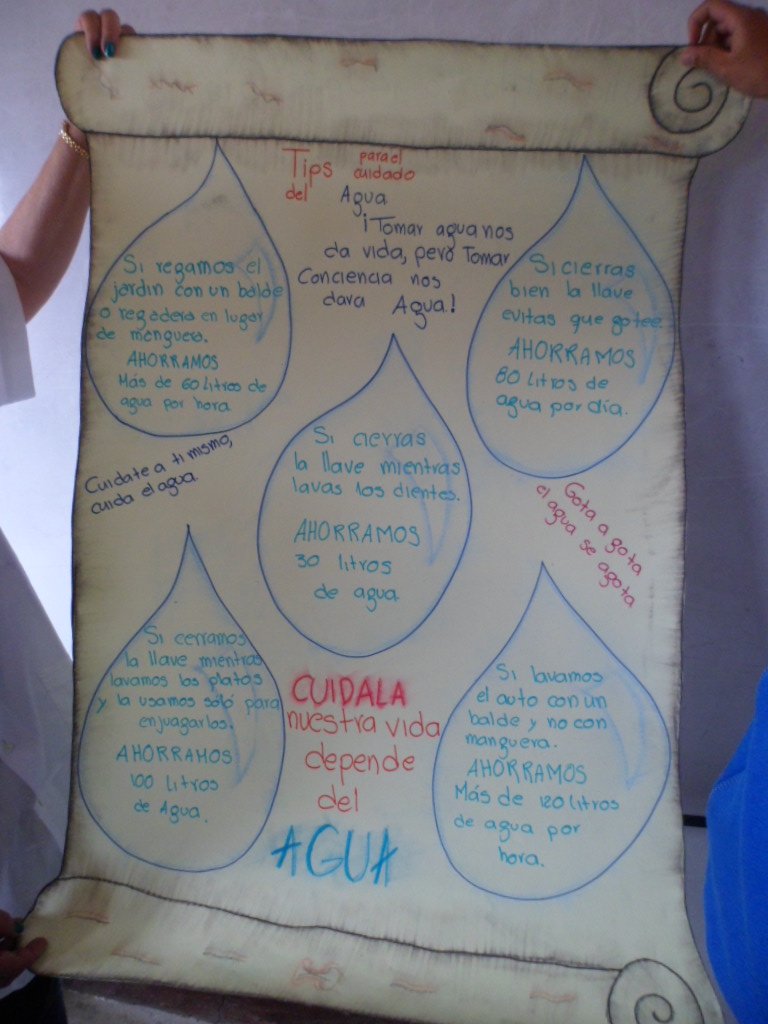 Tips para el
cuidado
del Agua
¡Tomar agua nos
da vida, pero Tomar
Conciencia nos
dara Agua!
Si regamos el
jardin con un balde
o regadera en lugar
de manguera.
AHORRAMOS
Más de 60 Litros de
agua por hora
Si cierras
bien la llave
evitas que gotee
AHORRAMOS
80 Litros de
agua por día.
Si cierras
la llave mientras
lavas los dientes.
AHORRAMOS
30 litros
de agua
Cuidate a ti mismo,
cuida el agua.
Gota a gota
el agua se agota
Si cerramos
la llave mientras
lavamos los platos
y la usamos solo para
enjuagarlos.
AHORRAMOS
100 Litros
de Agua.
CUIDALA
nuestra vida
depende
del
AGUA
Si lavamos
el auto con un
balde y no con
manguera.
AHORRAMOS
Más de 120 litros
de agua por
hora.